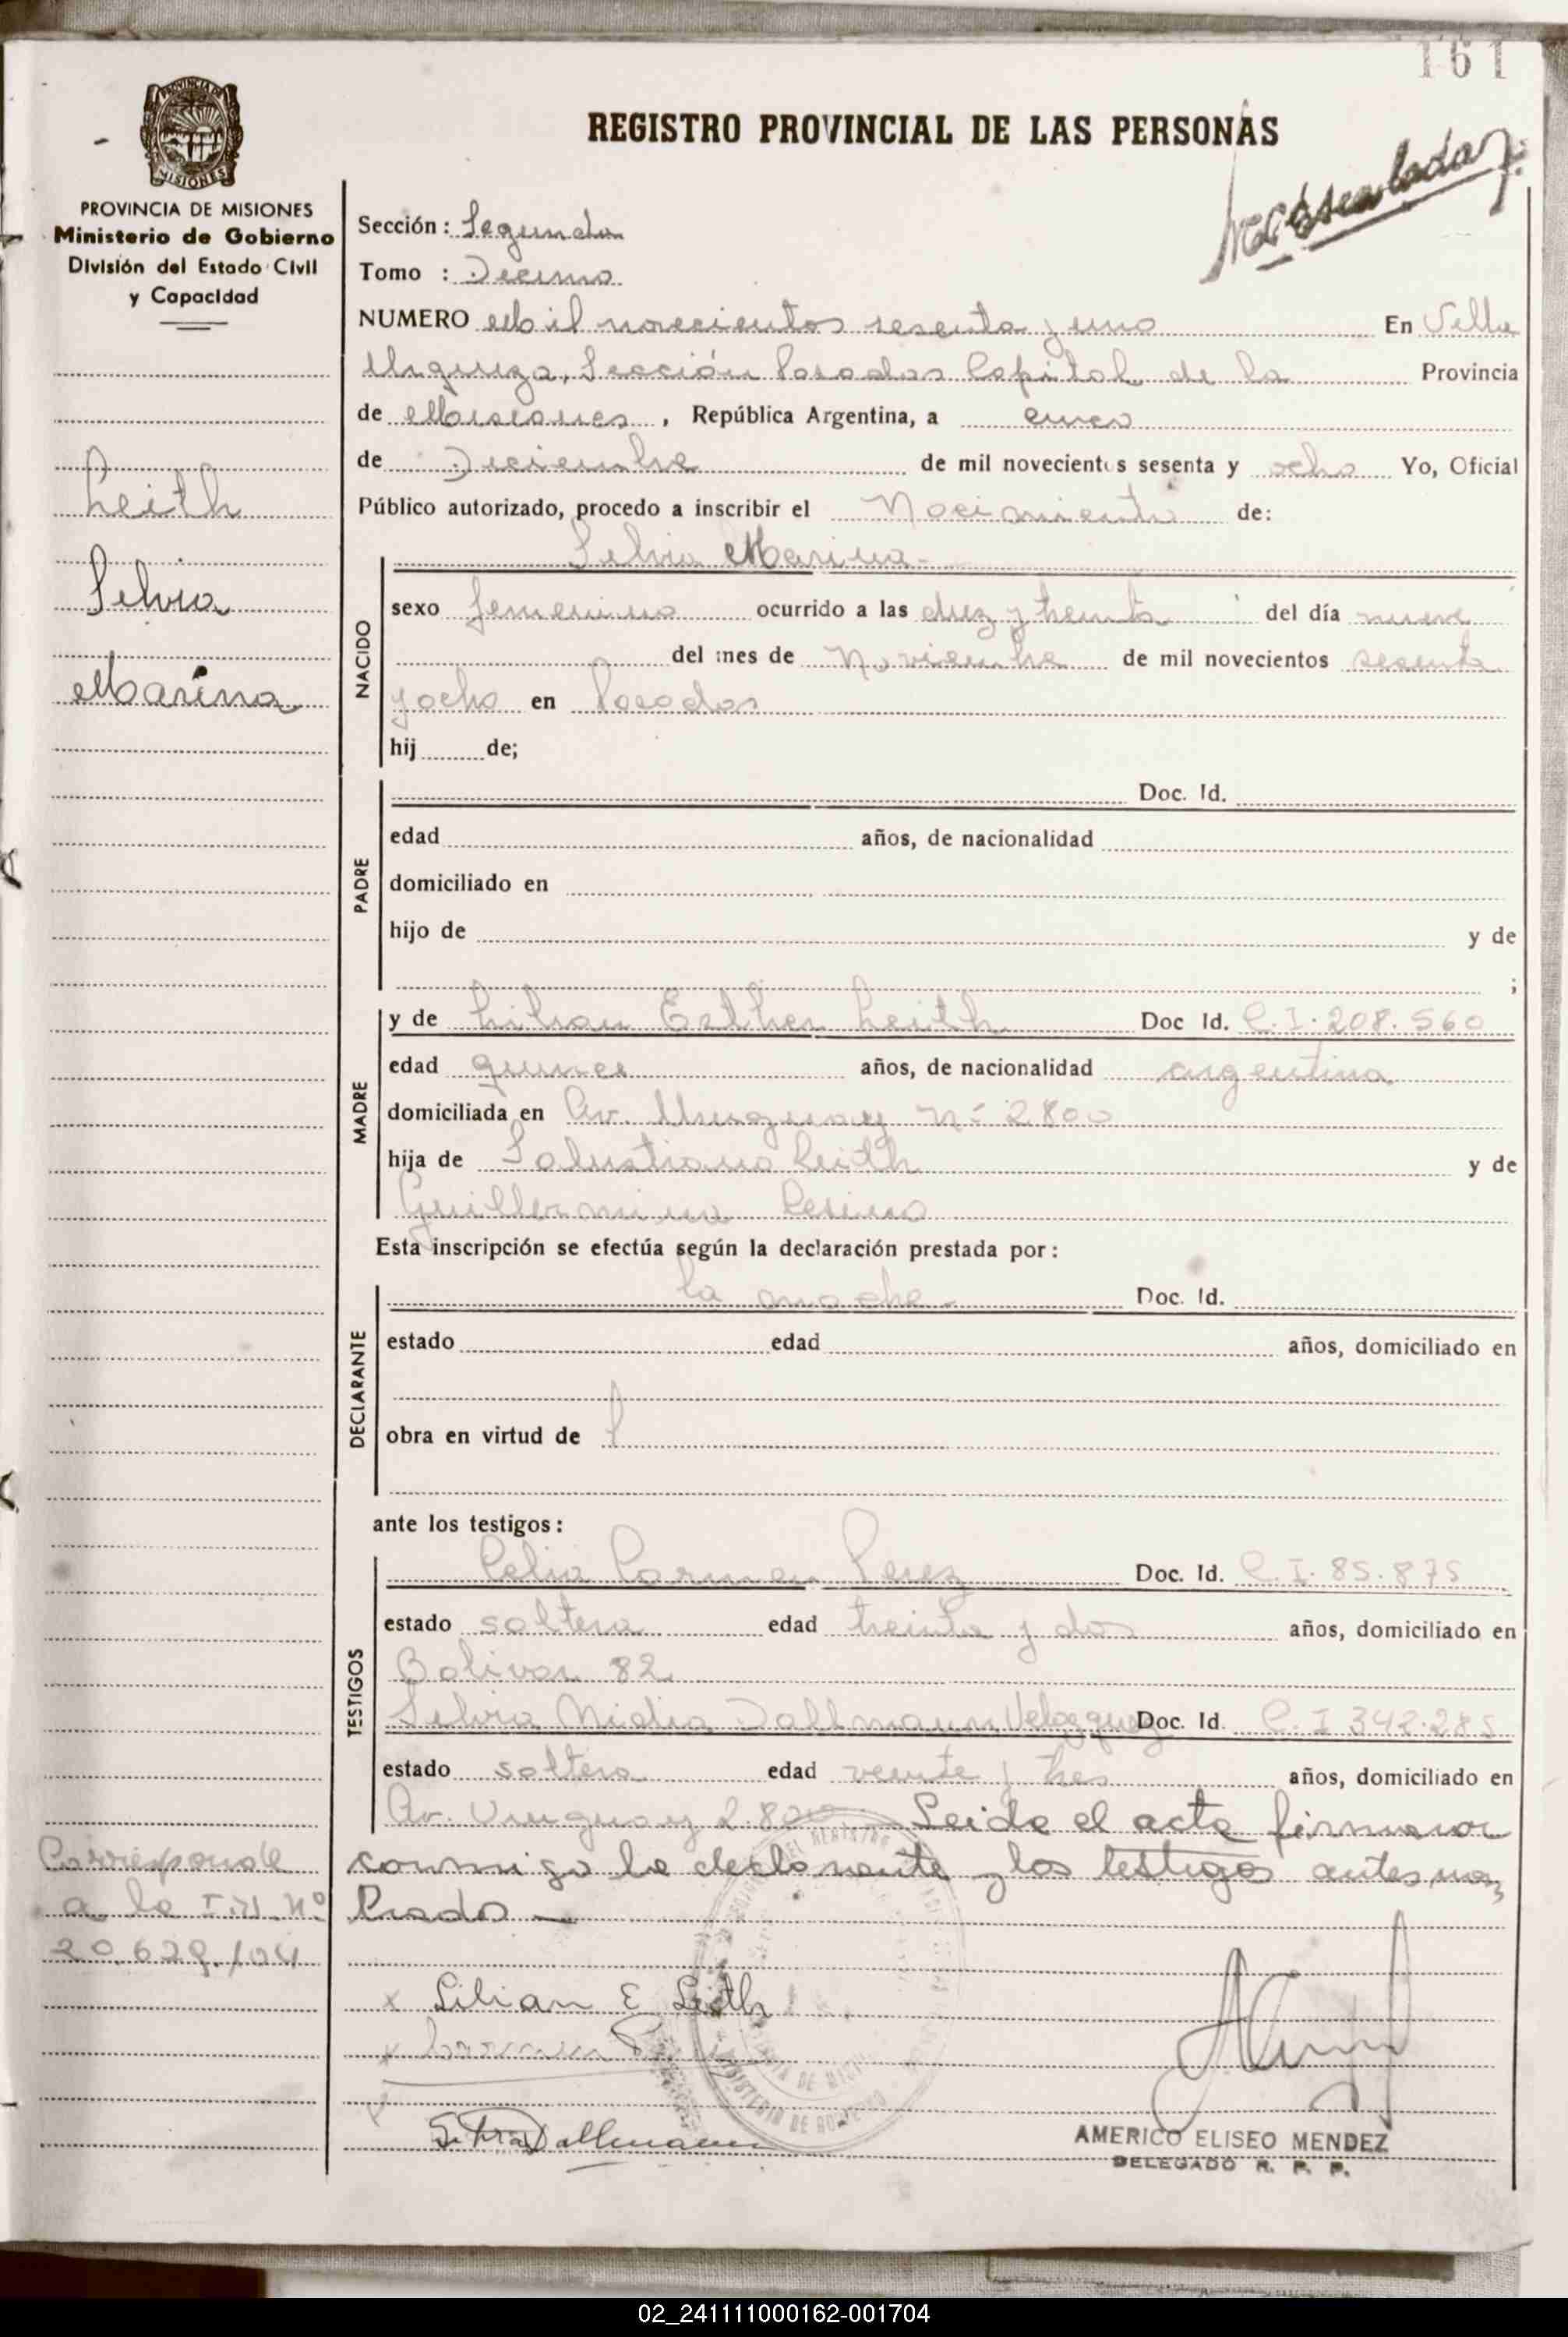 161
REGISTRO PROVINCIAL DE LAS PERSONAS
PROVINCIA DE MISIONES
Ministerio de Gobierno
División del Estado Civil
y Capacidad
Sección: Segunda
Tomo : Decimo
NUMERO Mil novecientos sesenta y uno En Villa
Urquiza, Sección Posadas Capital de la Provincia
de Misiones, República Argentina, a cinco
de Diciembre de mil novecientos sesenta y ocho Yo, Oficial
Público autorizado, procedo a inscribir el Nacimiento de:
Leith
Silvia
Marina
Silvia Marina-
NACIDO
sexo femenino ocurrido a las diez y treinta del día nueve
del mes de Noviembre de mil novecientos sesenta
y ocho en Posadas
hij de;
PADRE
Doc. Id.
edad años, de nacionalidad
domiciliado en
hijo de y de
;
MADRE
y de Lilian Esther Leith Doc Id. C.I. 208.560
edad quince años, de nacionalidad argentina
domiciliada en Av. Uruguay Nº 2800
hija de Salustiano Leith y de
Guillermina
Esta inscripción se efectúa según la declaración prestada por:
DECLARANTE
la madre- Doc. Id.
estado edad años, domiciliado en
obra en virtud de
ante los testigos:
TESTIGOS
Celia Carmen Perez Doc. Id. C.I. 85.875
estado soltera edad treinta y dos años, domiciliado en
Bolivar 82
Silvia Nidia Dallmann Velazquez Doc. Id. C.I 342.285
estado soltera edad veinte y tres años, domiciliado en
Av. Uruguay 2.800 - Leida el acta firmaron
conmigo la declarante y los testigos antes nom
brados-
Corresponde
a la I.N. Nº
20.629./04
x Lilian E Leith
x
Silvia Dallmann
AMERICO ELISEO MENDEZ
DELEGADO R. P. P.
02_241111000162-001704